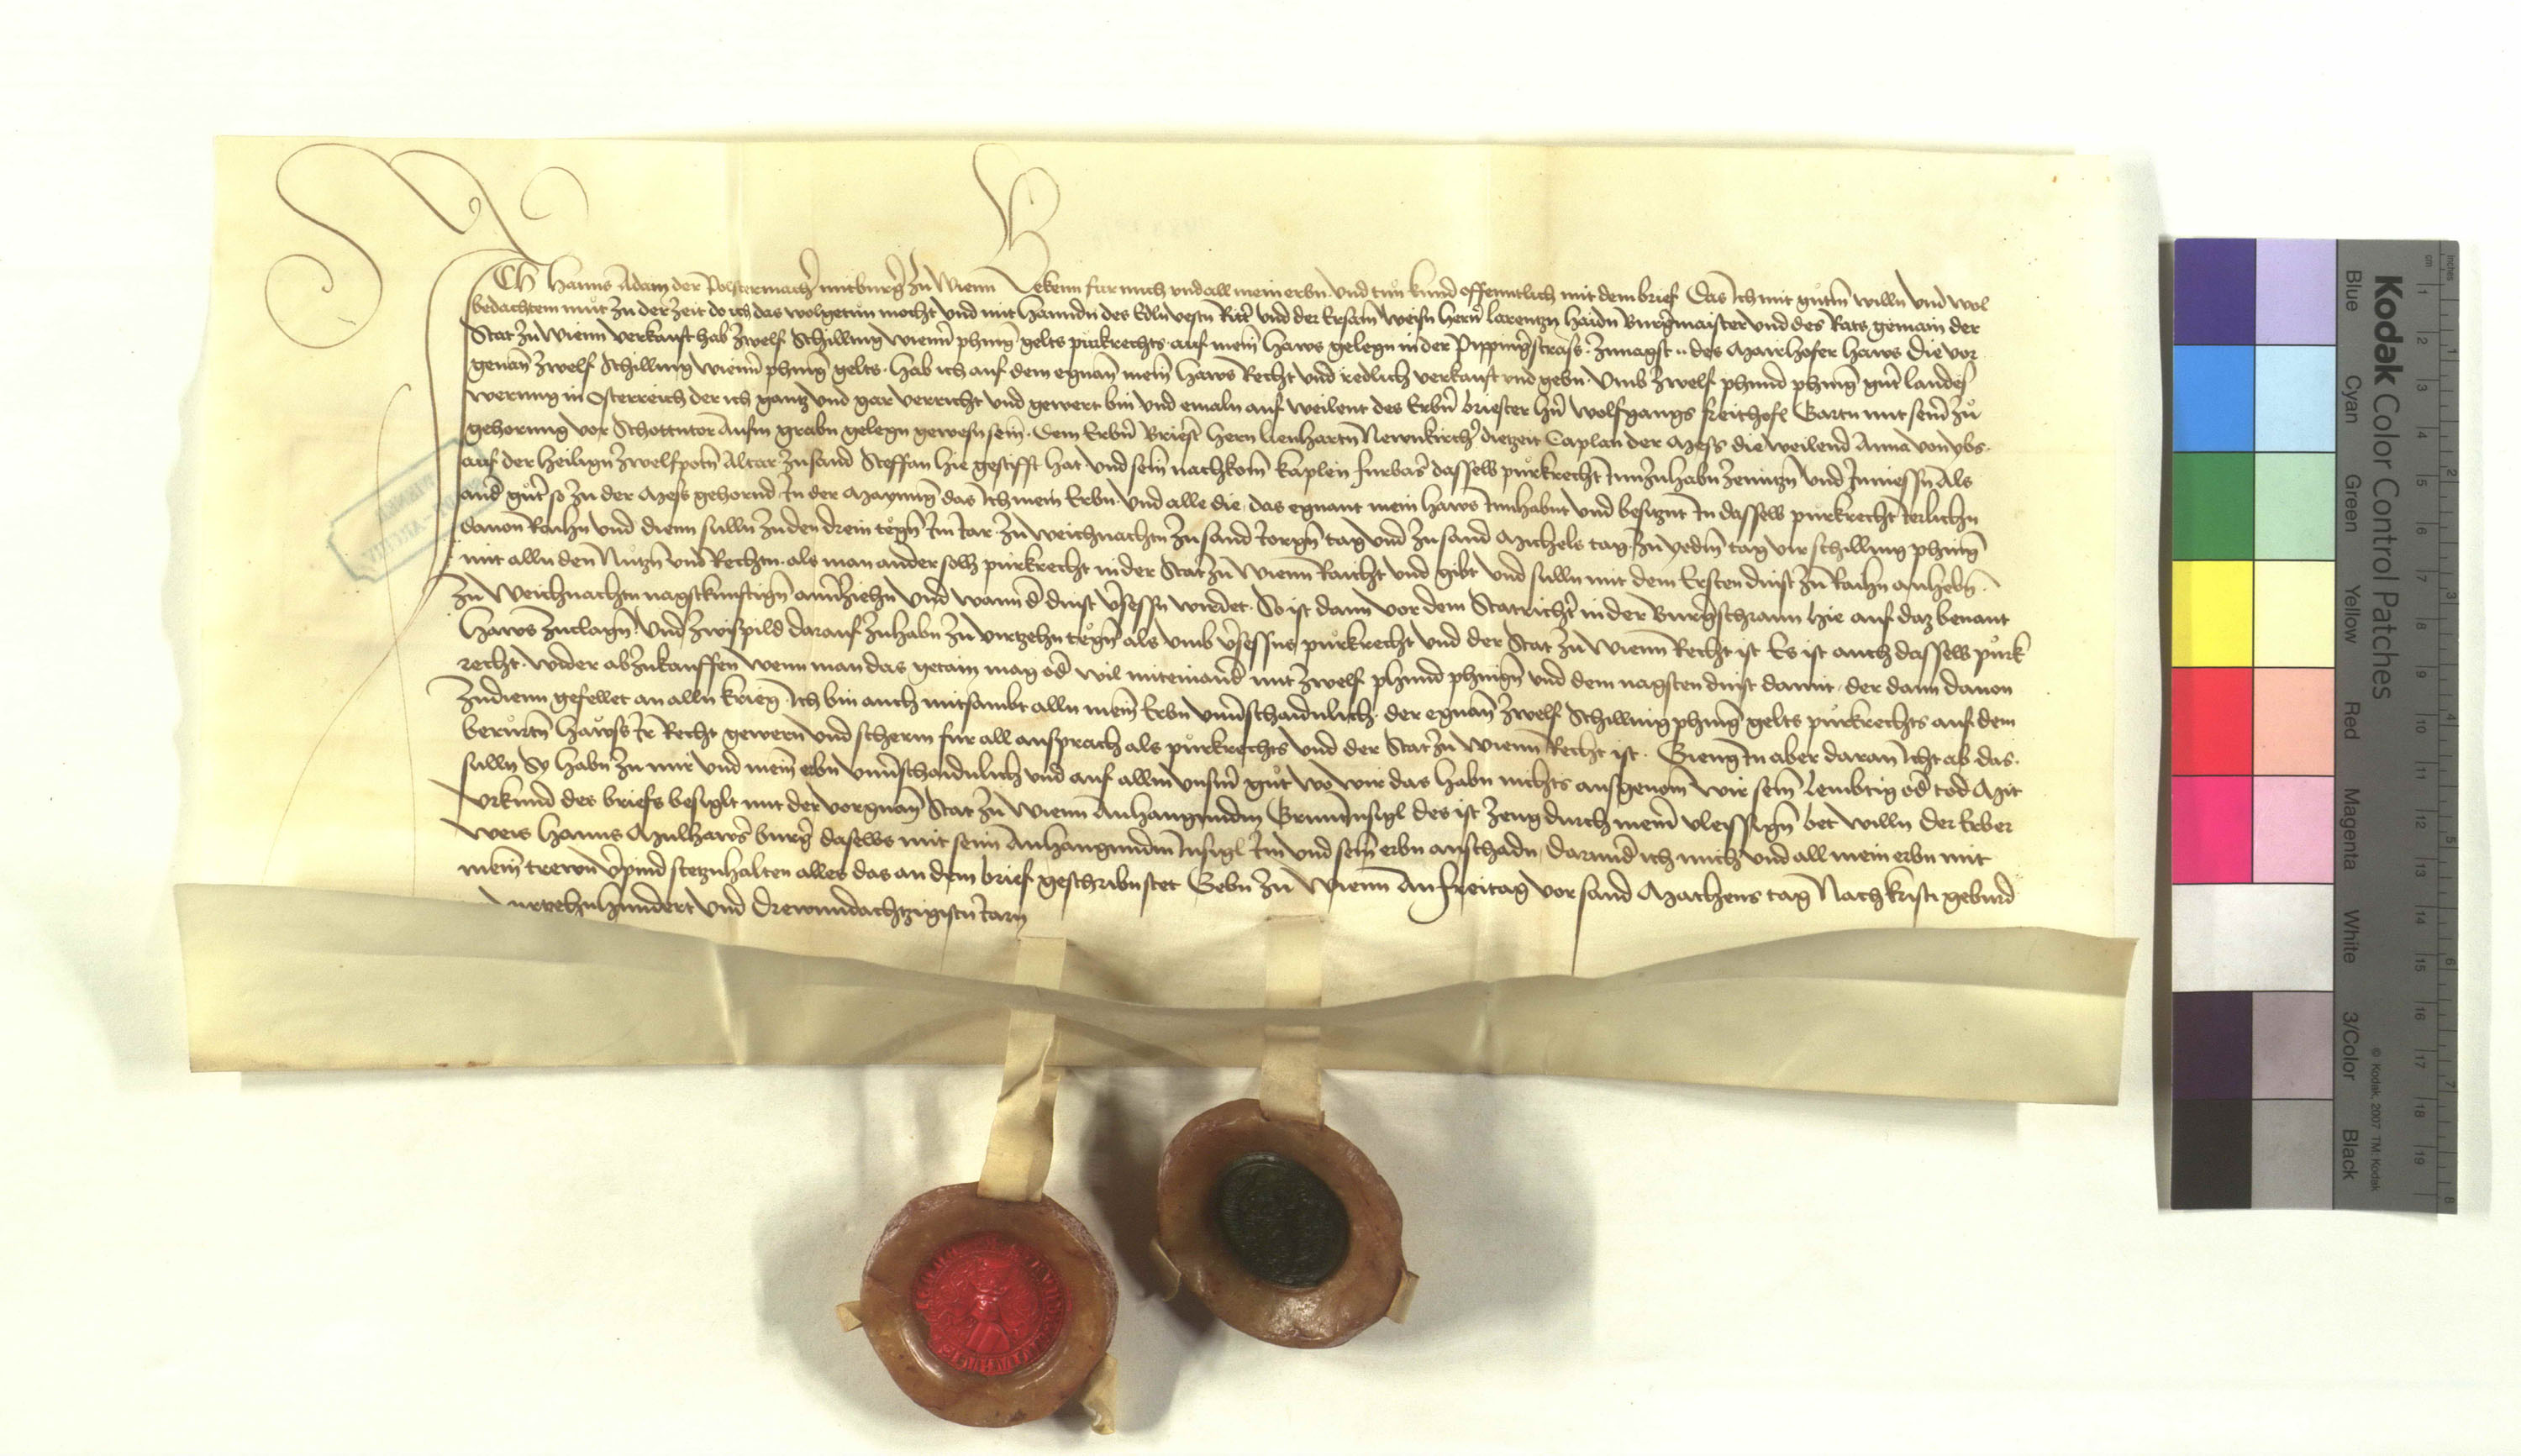 Ich Hanns Adam der Polstermacher mitburger zu Wienn Bekenn fur mich und all mein erbn und tun kund offenntlich mit dem brief Das Ich mit gutm willn und wol
bedachtem mut zu der Zeit do ich das wolgetun mocht und mit Hanndn des Edln vestn Ritter und der Ersam Weisn Hern Larentzn Haidn Burgermaister und des Rats gemain der
Stat zu Wienn verkauft hab Zwelf Schilling Wienner phening gelts purkrechts auf meim Haws gelegn in der Pippingerstrass Zunagst des Mairhofer Haws Die vor
genan Zwelf Schilling Wienner phening gelts hab ich auf dem egnan meim Haws Recht und redlich verkauft und gebn Umb Zwelf phund phening guter landes
werung in Osterreich der ich gantz und gar verricht und gewert bin und emaln auf weilent des Erbern briester hern Wolfgangs freithofs Gartn mit seiner zu
gehorung vor Schottntor Aufm grabn gelegn gewesn sein Dem Erbern Briest Hern Lienhartn Newnkircher dietzeit Caplan der Mess die weilend Anna von ybs
auf der Heilign Zwelfpotn Altar Zusand Steffan hie gestifft hat und sein nachkom Kaplen furbas dassew purkrecht Innzuhabn Zenutzn und Zuniessn Als
ander guter so zu der Mess gehornd In der Maynung das Ich mein Erbn und alle die das egnant mein Haws Innhabnt und besiznt In dassew purkrecht Ierlichn
dauon Raihn und dienn sulln zu den drein tegn Im Iar zu Weichnachtn Zu sand Iorgn tag und Zu sand Michels tag Zu yedm tag vir schilling phening
mit alln den Nutzn und Rechtn als man ander solh purkrecht in der Stat zu Wienn Raicht und gibt und sulln mit dem Ersten dinst zu Raihn anhebn
zu Weichnachtn nagstkunftign und wann der dinst versessn wirdet So ist dann vor dem Statrichter in der Burgerschrann hie auf daz benant
Haws Zuclagn und Zwispild darauf Zuhabn zu virtzehn tegn als umb versessns purkrecht und der Stat zu Wienn Recht ist Es ist auch dassew purk
recht wider abZukauffen wenn man das getain mag oder wil miteinander mit Zwelf phund phenign und dem nagsten dinst damit der dann dauon
Zudienn gefellet an alln krieg Ich bin auch mitsambt alln meinn Erbn unuerschaidnlich der egnan Zwelf Schilling phening gelts purkrechts auf dem
berurtn Hawss Ir Recht gewern und scherm fur all ansprach als purkrechts und der Stat zu Wienn Recht ist Gieng In aber daran Icht ab das
sulln Sy habn zu mir und mein erbn unuerschaidnlich und auf allm unserm gut wo wir das habn nichts ausgenom wir sein lembtig oder tod Mit
Urkund des briefs besiglt mit der vorgnan Stat zu Wienn Anhangundm Gruntinsigl des ist Zeug durch meiner vleissign bet willn der Erber
Weis Hanns Mulhawser burger daselbs mit seim Anhangundm Insigl Im und sein erbn anschadn Darunder ich mich und all mein erbn mit
mein trewn verpind stetzuhalten alles das an dem brief geschribn stet Gebn zu Wienn An freitag vor sand Mathens tag Nach Kristi geburd
virtzehnhundert und Drewundachtzigistn Iarn
Kodak Color Control Patches
Blue Cyan Green Yellow Red Magenta White 3/Color Black
© Kodak, 2007 TM: Kodak
cm 1 2 3 4 5 6 7 8 9 10 11 12 13 14 15 16 17 18 19
Inches 1 2 3 4 5 6 7 8